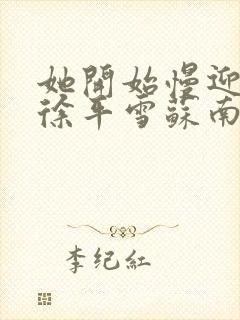 她開始慢迎
徐平雪蘇南
李纪紅